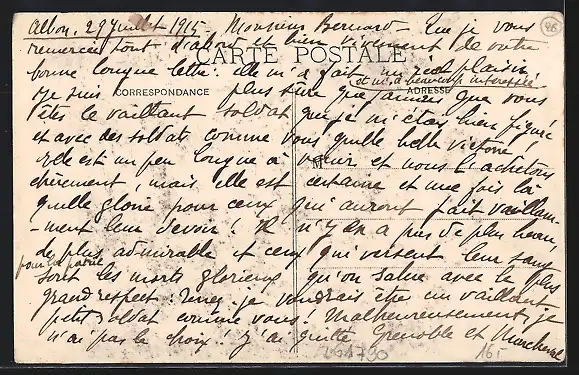 Albon, 29 Juillet 1915 - Monsieur Bernard - Que je vous
remercie tout d'abord et bien vivement de votre
CARTE POSTALE
bonne longue lettre : elle m'a fait un réel plaisir
et m'a beaucoup intéressée
CORRESPONDANCE
ADRESSE
Je suis plus sûre que jamais que vous
êtes le vaillant soldat que je m'étais bien figuré
et avec des soldats comme vous quelle belle victoire !
Elle est un peu longue à venir et nous l'achetons
M
chèrement, mais elle est certaine et une fois là
quelle gloire pour ceux qui auront fait vaillam-
-ment leur devoir ! Il n'y en a pas de plus beau,
de plus admirable et ceux qui versent leur sang
pour la Patrie
sont les morts glorieux qu'on salue avec le plus
grand respect : Tenez je voudrais être un vaillant
petit soldat comme vous ! Malheureusement je
n'ai pas le choix ! J'ai quitté Grenoble et
164790
16